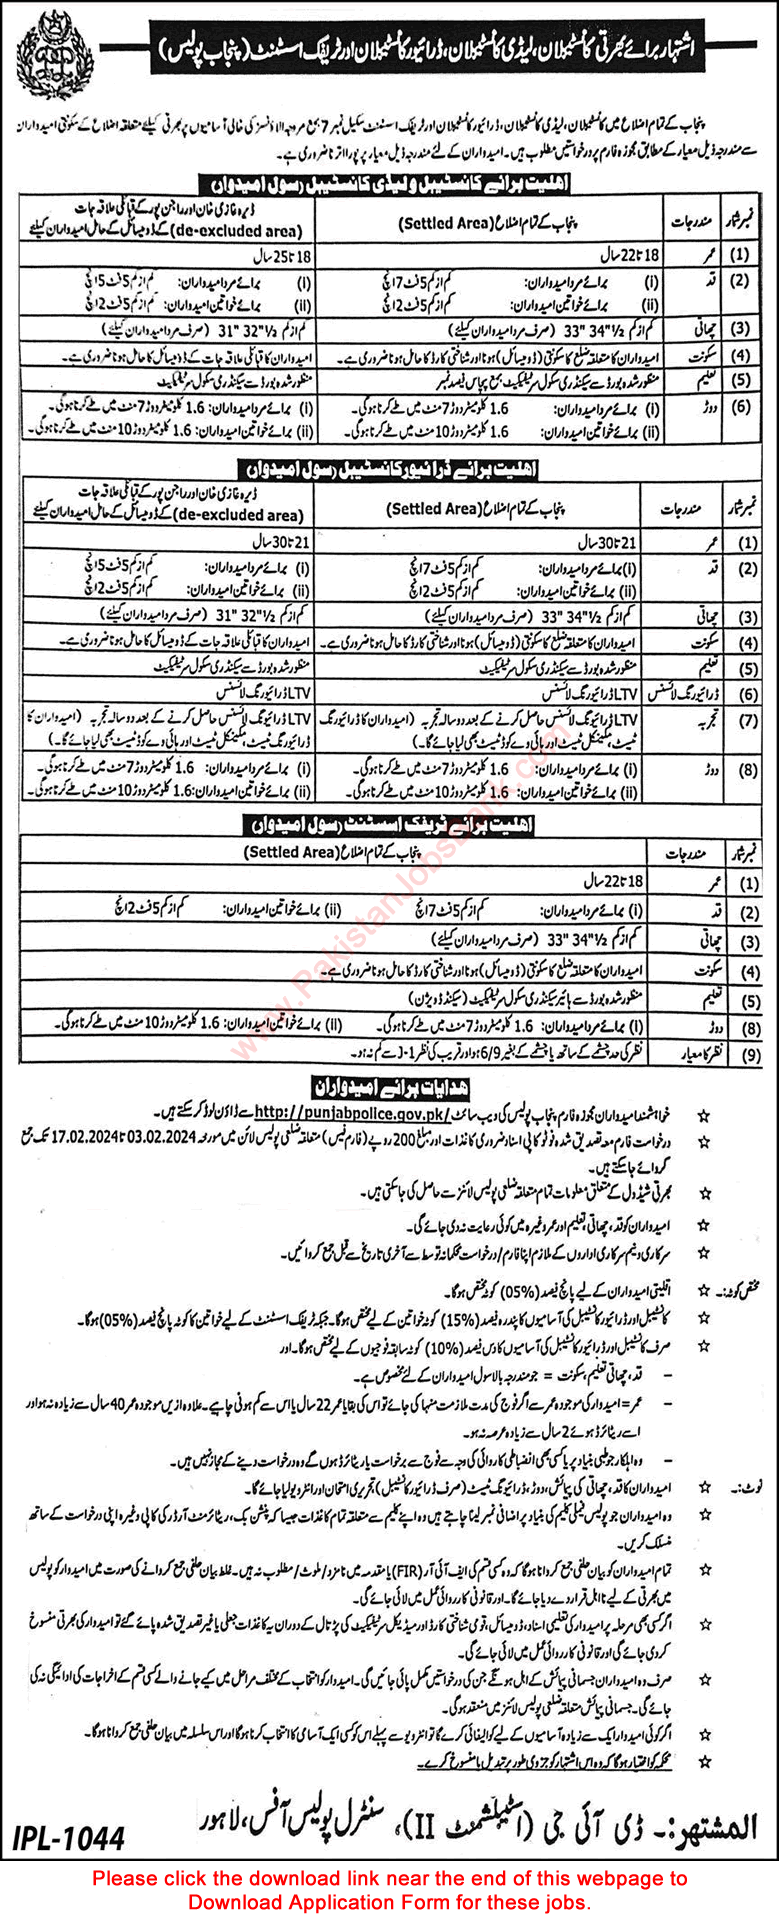 اشتہار برائے بھرتی کانسٹیبلان، لیڈی کانسٹیبلان، ڈرائیور کانسٹیبلان اور ٹریفک اسسٹنٹ (پنجاب پولیس)
پنجاب کے تمام اضلاع میں کانسٹیبلان، لیڈی کانسٹیبلان، ڈرائیور کانسٹیبلان اور ٹریفک اسسٹنٹ سکیل نمبر 7 بمع مروجہ الاؤنسز کی خالی آسامیوں پر بھرتی کیلئے متعلقہ اضلاع کے سکونتی امیدواران
سے مندرجہ ذیل معیار کے مطابق مجوزہ فارم پر درخواستیں مطلوب ہیں۔ امیدواران کے لئے مندرجہ ذیل معیار پر پورا اترنا ضروری ہے۔
اہلیت برائے کانسٹیبل و لیڈی کانسٹیبل (سول امیدوار)
نمبر شمار مندرجات پنجاب کے تمام اضلاع (Settled Area) ڈیرہ غازی خان اور راجن پور کے قبائلی علاقہ جات
(de-excluded area) کے ڈومیسائل کے حامل امیدواران کیلئے
(1) عمر 18 تا 22 سال 18 تا 25 سال
(2) قد (i) برائے مرد امیدواران: کم از کم 5 فٹ 7 انچ (i) برائے مرد امیدواران: کم از کم 5 فٹ 5 انچ
(ii) برائے خواتین امیدواران: کم از کم 5 فٹ 2 انچ (ii) برائے خواتین امیدواران: کم از کم 5 فٹ 2 انچ
(3) چھاتی کم از کم 33" 34½" (صرف مرد امیدواران کیلئے) 31" 32½" (صرف مرد امیدواران کیلئے)
(4) سکونت امیدواران کا متعلقہ ضلع کا سکونتی (ڈومیسائل) ہونا اور شناختی کارڈ کا حامل ہونا ضروری ہے۔ امیدواران کا قبائلی علاقہ جات کے ڈومیسائل کا حامل ہونا ضروری ہے۔
(5) تعلیم منظور شدہ بورڈ سے سیکنڈری سکول سرٹیفکیٹ بمع پچاس فیصد نمبر منظور شدہ بورڈ سے سیکنڈری سکول سرٹیفکیٹ
(6) دوڑ (i) برائے مرد امیدواران: 1.6 کلومیٹر دوڑ 7 منٹ میں طے کرنا ہوگی۔ (i) برائے مرد امیدواران: 1.6 کلومیٹر دوڑ 7 منٹ میں طے کرنا ہوگی۔
(ii) برائے خواتین امیدواران: 1.6 کلومیٹر دوڑ 10 منٹ میں طے کرنا ہوگی۔ (ii) برائے خواتین امیدواران: 1.6 کلومیٹر دوڑ 10 منٹ میں طے کرنا ہوگی۔
اہلیت برائے ڈرائیور کانسٹیبل (سول امیدوار)
نمبر شمار مندرجات پنجاب کے تمام اضلاع (Settled Area) ڈیرہ غازی خان اور راجن پور کے قبائلی علاقہ جات
(de-excluded area) کے ڈومیسائل کے حامل امیدواران کیلئے
(1) عمر 21 تا 30 سال 21 تا 30 سال
(2) قد (i) برائے مرد امیدواران: کم از کم 5 فٹ 7 انچ (i) برائے مرد امیدواران: کم از کم 5 فٹ 5 انچ
(ii) برائے خواتین امیدواران: کم از کم 5 فٹ 2 انچ (ii) برائے خواتین امیدواران: کم از کم 5 فٹ 2 انچ
(3) چھاتی کم از کم 33" 34½" (صرف مرد امیدواران کیلئے) کم از کم 31" 32½" (صرف مرد امیدواران کیلئے)
(4) سکونت امیدواران کا متعلقہ ضلع کا سکونتی (ڈومیسائل) ہونا اور شناختی کارڈ کا حامل ہونا ضروری ہے۔ امیدواران کا قبائلی علاقہ جات کے ڈومیسائل کا حامل ہونا ضروری ہے۔
(5) تعلیم منظور شدہ بورڈ سے سیکنڈری سکول سرٹیفکیٹ منظور شدہ بورڈ سے سیکنڈری سکول سرٹیفکیٹ
(6) ڈرائیونگ لائسنس LTV ڈرائیونگ لائسنس LTV ڈرائیونگ لائسنس
(7) تجربہ LTV ڈرائیونگ لائسنس حاصل کرنے کے بعد دو سالہ تجربہ (امیدواران کا ڈرائیونگ LTV ڈرائیونگ لائسنس حاصل کرنے کے بعد دو سالہ تجربہ (امیدواران کا
ٹیسٹ، مکینیکل ٹیسٹ اور ہائی وے کوڈ ٹیسٹ بھی لیا جائے گا)۔ ڈرائیونگ ٹیسٹ، مکینیکل ٹیسٹ اور ہائی وے کوڈ ٹیسٹ بھی لیا جائے گا)۔
(8) دوڑ (i) برائے مرد امیدواران: 1.6 کلومیٹر دوڑ 7 منٹ میں طے کرنا ہوگی۔ (i) برائے مرد امیدواران: 1.6 کلومیٹر دوڑ 7 منٹ میں طے کرنا ہوگی۔
(ii) برائے خواتین امیدواران: 1.6 کلومیٹر دوڑ 10 منٹ میں طے کرنا ہوگی۔ (ii) برائے خواتین امیدواران: 1.6 کلومیٹر دوڑ 10 منٹ میں طے کرنا ہوگی۔
اہلیت برائے ٹریفک اسسٹنٹ (سول امیدوار)
نمبر شمار مندرجات پنجاب کے تمام اضلاع (Settled Area)
(1) عمر 18 تا 22 سال
(2) قد (i) برائے مرد امیدواران: کم از کم 5 فٹ 7 انچ (ii) برائے خواتین امیدواران: کم از کم 5 فٹ 2 انچ
(3) چھاتی کم از کم 33" 34½" (صرف مرد امیدواران کیلئے)
(4) سکونت امیدواران کا متعلقہ ضلع کا سکونتی (ڈومیسائل) ہونا اور شناختی کارڈ کا حامل ہونا ضروری ہے۔
(5) تعلیم منظور شدہ بورڈ سے ہائیر سیکنڈری سکول سرٹیفکیٹ (سیکنڈ ڈویژن)
(8) دوڑ (i) برائے مرد امیدواران: 1.6 کلومیٹر دوڑ 7 منٹ میں طے کرنا ہوگی۔ (ii) برائے خواتین امیدواران: 1.6 کلومیٹر دوڑ 10 منٹ میں طے کرنا ہوگی۔
(9) نظر کا معیار نظر کی حد چشمے کے ساتھ یا چشمے کے بغیر 6/9 ہو اور قریب کی نظر J-1 سے کم نہ ہو۔
ہدایات برائے امیدواران
☆ خواہشمند امیدواران مجوزہ فارم پنجاب پولیس کی ویب سائٹ http://punjabpolice.gov.pk/ سے ڈاؤن لوڈ کر سکتے ہیں۔
☆ درخواست فارم معہ تصدیق شدہ فوٹو کاپی اسناد ضروری کاغذات اور مبلغ 200 روپے (فارم فیس) متعلقہ ضلعی پولیس لائن میں مورخہ 03.02.2024 تا 17.02.2024 تک جمع
کروائے جا سکتے ہیں۔
☆ بھرتی شیڈول کے متعلق معلومات تمام متعلقہ ضلعی پولیس لائنز سے حاصل کی جا سکتی ہیں۔
☆ امیدواران کو قد، چھاتی، تعلیم اور عمر وغیرہ میں کوئی رعایت نہ دی جائے گی۔
☆ سرکاری و نیم سرکاری اداروں کے ملازم اپنا فارم / درخواست محکمانہ توسط سے آخری تاریخ سے قبل جمع کروائیں۔
مختص کوٹہ:۔ ☆ اقلیتی امیدواران کے لیے پانچ فیصد (05%) کوٹہ مختص ہوگا۔
☆ کانسٹیبل اور ڈرائیور کانسٹیبل کی آسامیوں کا پندرہ فیصد (15%) کوٹہ خواتین کے لیے مختص ہوگا۔ جبکہ ٹریفک اسسٹنٹ کے لیے خواتین کا کوٹہ پانچ فیصد (05%) ہوگا۔
☆ صرف کانسٹیبل اور ڈرائیور کانسٹیبل کی آسامیوں کا دس فیصد (10%) کوٹہ سابقہ فوجیوں کے لیے مختص ہوگا۔ اور
- قد، چھاتی، تعلیم، سکونت = جو مندرجہ بالا سول امیدواران کے لئے مخصوص ہے۔
- عمر = امیدوار کی موجودہ عمر سے اگر فوج کی مدت ملازمت منہا کی جائے تو اس کی بقایا عمر 22 سال یا اس سے کم ہونی چاہیے۔ علاوہ ازیں موجودہ عمر 40 سال سے زیادہ نہ ہو اور
اسے ریٹائرڈ ہوئے 2 سال سے زیادہ عرصہ نہ ہو۔
- وہ اہلکار جو طبی بنیاد پر یا کسی بھی انضباطی کاروائی کی وجہ سے فوج سے برخواست یا ریٹائرڈ ہوں گے وہ درخواست دینے کے مجاز نہیں ہیں۔
نوٹ:۔ ☆ امیدواران کا قد، چھاتی کی پیمائش، دوڑ، ڈرائیونگ ٹیسٹ (صرف ڈرائیور کانسٹیبل) تحریری امتحان اور انٹرویو لیا جائے گا۔
☆ وہ امیدواران جو پولیس فیملی کلیم کی بنیاد پر اضافی نمبر لینا چاہتے ہیں وہ اپنے کلیم سے متعلقہ تمام کاغذات جیسا کہ پنشن بک، ریٹائرمنٹ آرڈر کی کاپی وغیرہ اپنی درخواست کے ساتھ
منسلک کریں۔
☆ تمام امیدواران کو بیان حلفی جمع کروانا ہوگا کہ وہ کسی قسم کی ایف آئی آر (FIR) یا مقدمہ میں نامزد / ملوث / مطلوب نہ ہیں۔ غلط بیان حلفی جمع کروانے کی صورت میں امیدوار کو پولیس
میں بھرتی کے لیے نا اہل قرار دے دیا جائے گا۔ اور قانونی کارروائی عمل میں لائی جائے گی۔
☆ اگر کسی بھی مرحلہ پر امیدوار کی تعلیمی اسناد، ڈومیسائل، قومی شناختی کارڈ اور میڈیکل سرٹیفکیٹ کی پڑتال کے دوران یہ کاغذات جعلی یا غیر تصدیق شدہ پائے گئے تو امیدوار کی بھرتی منسوخ
کر دی جائے گی اور قانونی کارروائی عمل میں لائی جائے گی۔
☆ صرف وہ امیدواران جسمانی پیمائش کے اہل ہونگے جن کی درخواستیں مکمل پائی جائیں گی۔ امیدوار کو انتخاب کے مختلف مراحل میں کیے جانے والے کسی قسم کے اخراجات کی ادائیگی نہ کی
جائے گی۔ جسمانی پیمائش متعلقہ ضلعی پولیس لائنز میں منعقد ہوگی۔
☆ اگر کوئی امیدوار ایک سے زیادہ آسامیوں کے لیے کوالیفائی کرے گا تو انٹرویو سے پہلے اس کو کسی ایک آسامی کا انتخاب کرنا ہوگا اور اس سلسلہ میں بیان حلفی جمع کروانا ہوگا۔
☆ محکمہ کو اختیار ہوگا کہ وہ اس اشتہار کو جزوی طور پر تبدیل یا منسوخ کرے۔
المشتہر:۔ ڈی آئی جی (اسٹیبلشمنٹ II)، سنٹرل پولیس آفس، لاہور
IPL-1044
www.PakistanJobsBank.com
Please click the download link near the end of this webpage to
Download Application Form for these jobs.